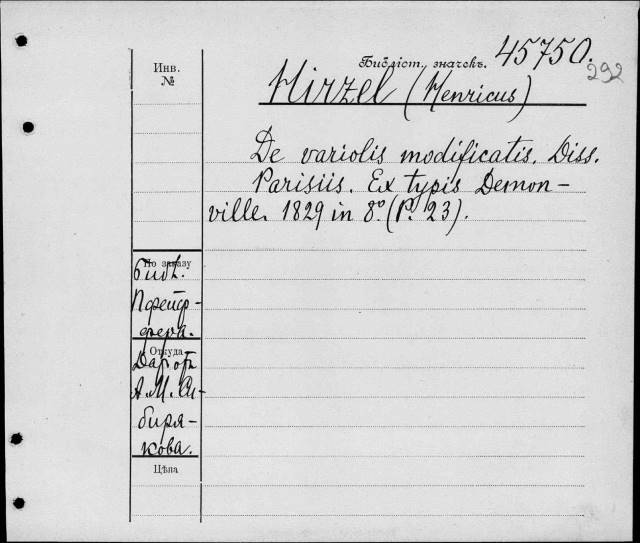 Инв.
№
Библіот. значекъ. 45750.
292
Hirzel (Henricus)
De variolis modificatis. Diss.
Parisiis. Ex typis Demon-
ville. 1829 in 8º. (P. 23).
По заказу
Библ.
Пфейф-
фера.
Откуда
Даръ отъ
А. М. Си-
биря-
кова.
Цѣна